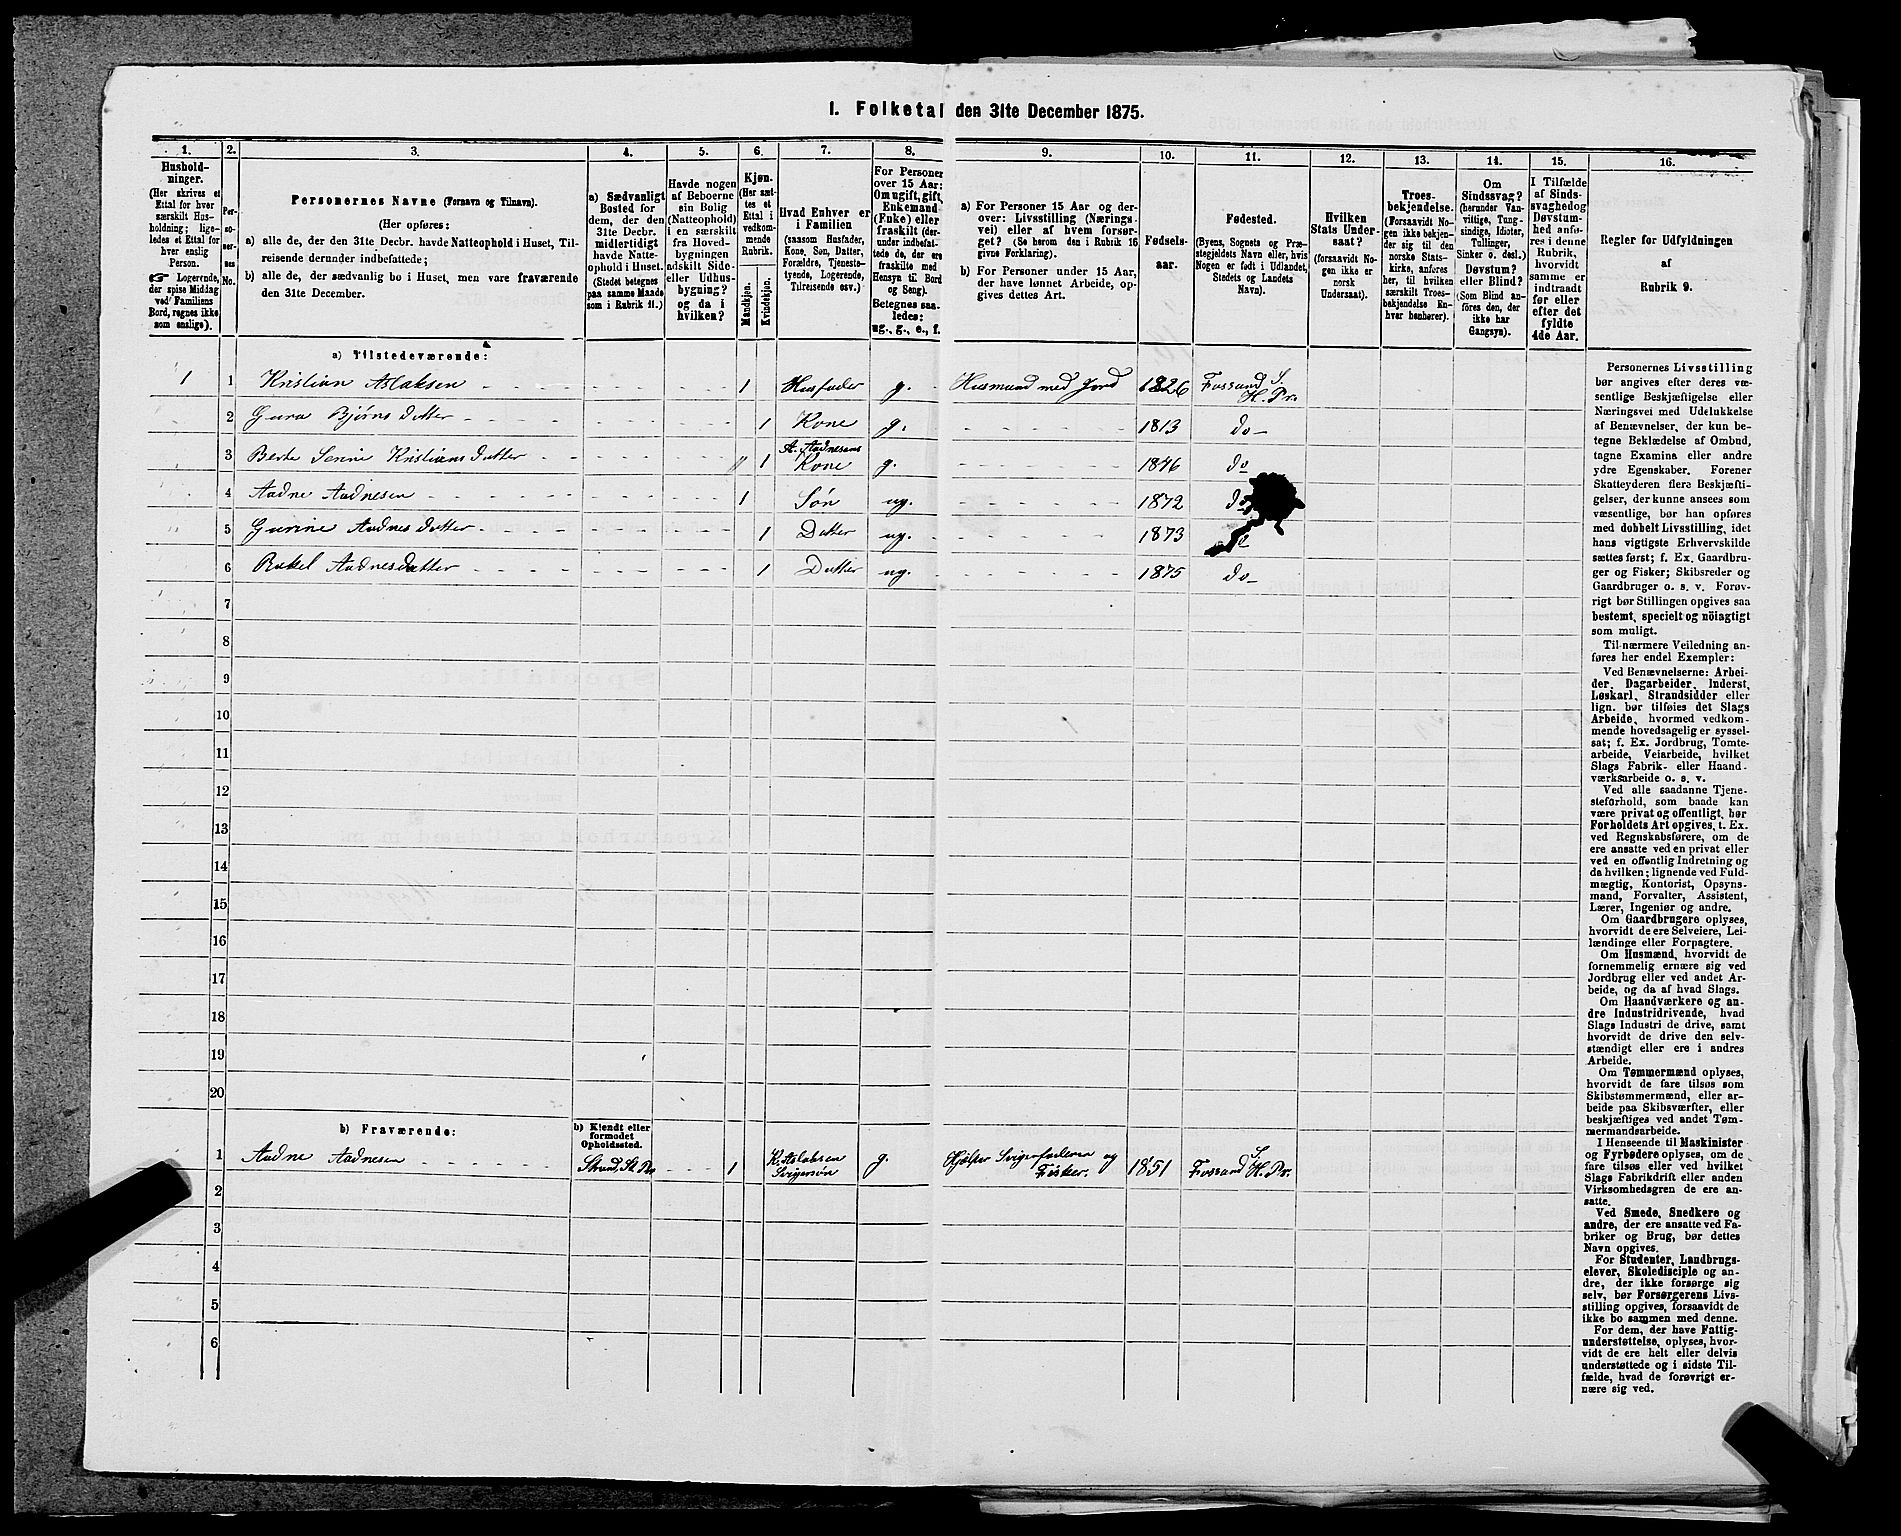 1. Folketal den 31te December 1875.
1. 2. 3. 4. 5. 6. 7. 8. 9. 10. 11. 12. 13. 14. 15. 16.
Hushold-
ninger.
(Her skrives et
Ettal for hver
særskilt Hus-
holdning; lige-
ledes et Ettal for
hver enslig
Person.
☞ Logerende,
der spise Middag
ved Familiens
Bord, regnes ikke
som enslige).
Per-
so-
ner-
nes
No.
Personernes Navne (Fornavn og Tilnavn).
(Her opføres:
a) alle de, der den 31te Decbr. havde Natteophold i Huset, Til-
reisende derunder indbefattede;
b) alle de, der sædvanlig bo i Huset, men vare fraværende
den 31te December.
a) Sædvanligt
Bosted for
dem, der den
31te Decbr.
midlertidigt
havde Natte-
ophold i Huset.
(Stedet betegnes
paa samme Maade
som i Rubrik 11.)
Havde nogen
af Beboerne
sin Bolig
(Natteophold)
i en særskilt
fra Hoved-
bygningen
adskilt Side-
eller Udhus-
bygning?
og da i
hvilken?
Kjøn.
(Her sæt-
tes et
Ettal i
vedkom-
mende
Rubrik.
Mandkjøn.
Kvindekjøn.
Hvad Enhver er
i Familien
(saasom Husfader,
Kone, Søn, Datter,
Forældre, Tjeneste-
tyende, Logerende,
Tilreisende osv.)
For Personer
over 15 Aar:
Om ugift, gift,
Enkemand
(Enke) eller
fraskilt (der-
under indbefat-
tede de, der ere
fraskilte med
Hensyn til Bord
og Seng).
Betegnes saa-
ledes:
ug., g., e., f.
a) For Personer 15 Aar og der-
over: Livsstilling (Nærings-
vei) eller af hvem forsør-
get? (Se herom den i Rubrik 16
givne Forklaring).
b) For Personer under 15 Aar,
der have lønnet Arbeide, op-
gives dettes Art.
Fødsels-
aar.
Fødested.
(Byens, Sognets og Præ-
stegjeldets Navn eller, hvis
Nogen er født i Udlandet,
Stedets og Landets
Navn).
Hvilken
Stats Under-
saat?
(forsaavidt No-
gen ikke er
norsk
Undersaat).
Troes-
bekjendelse.
(Forsaavidt No-
gen ikke bekjen-
der sig til den
norske Stats-
kirke, anføres
her, til hvilken
særskilt Troes-
bekjendelse En-
hver henhører).
Om
Sindssvag?
(herunder Van-
vittige, Tung-
sindige, Idioter,
Tullinger,
Sinker o. desl.)
Døvstum?
eller Blind?
(Som Blind an-
føres den, der
ikke har
Gangsyn).
I Tilfælde
af Sinds-
svaghed og
Døvstum-
hed anfø-
res i denne
Rubrik,
hvorvidt
samme er
indtraadt
før eller
efter det
fyldte
4de Aar.
Regler for Udfyldningen
af
Rubrik 9.
a) Tilstedeværende:
1 1 Kristian Aslaksen 1 Husfader g. Husmand med Jord 1826 Fossand S. H. Pr.
2 Guro Bjørnsdatter 1 Kone g. 1813 do
3 Berte Serine Kristiansdatter 1 A. Aadnesens Kone g. 1846 do
4 Aadne Aadnesen 1 Søn ug. 1872 do
5 Gurine Aadnesdatter 1 Datter ug. 1873 do
6 Rakel Aadnesdatter 1 Datter ug. 1875 do
7
8
9
10
11
12
13
14
15
16
17
18
19
20
b) Fraværende:
b) Kjendt eller
formodet
Opholdssted.
1 Aadne Aadnesen Strand, St. Pr. 1 K. Aslaksen Svigersøn g. Hjælper Svigerfaderen og Fisker. 1851 Fossand S. H. Pr.
2
3
4
5
6
Personernes Livsstilling
bør angives efter deres væ-
sentlige Beskjæftigelse eller
Næringsvei med Udelukkelse
af Benævnelser, der kun be-
tegne Beklædelse af Ombud,
tagne Examina eller andre
ydre Egenskaber. Forener
Skatteyderen flere Beskjæfti-
gelser, der kunne ansees som
væsentlige, bør han opføres
med dobbelt Livsstilling, idet
hans vigtigste Erhvervskilde
sættes først; f. Ex. Gaardbru-
ger og Fisker; Skibsreder og
Gaardbruger o. s. v. Forøv-
rigt bør Stillingen opgives saa
bestemt, specielt og nöiagtigt
som muligt.
Til nærmere Veiledning an-
føres her endel Exempler:
Ved Benævnelserne: Arbei-
der, Dagarbeider, Inderst,
Løskarl, Strandsidder eller
lign. bør tilføies det Slags
Arbeide, hvormed vedkom-
mende hovedsagelig er syssel-
sat; f. Ex. Jordbrug, Tomte-
arbeide, Veiarbeide, hvilket
Slags Fabrik- eller Haand-
værksarbeide o. s. v.
Ved alle saadanne Tjene-
steforhold, som baade kan
være privat og offentligt, bør
Forholdets Art opgives, t. Ex.
ved Regnskabsførere, om de
ere ansatte ved en privat eller
ved en offentlig Indretning og
da hvilken; lignende ved Fuld-
mægtig, Kontorist, Opsyns-
mand, Forvalter, Assistent,
Lærer, Ingeniør og andre.
Om Gaardbrugere oplyses,
hvorvidt de ere Selveiere, Lei-
lændinge eller Forpagtere.
Om Husmænd, hvorvidt de
fornemmelig ernære sig ved
Jordbrug eller ved andet Ar-
beide, og da af hvad Slags.
Om Haandværkere og an-
dre Industridrivende, hvad
Slags Industri de drive, samt
hvorvidt de drive den selv-
stændigt eller ere i andres
Arbeide.
Om Tømmermænd oplyses,
hvorvidt de fare tilsøs som
Skibstømmermænd, eller ar-
beide paa Skibsværfter, eller
beskjæftiges ved andet Tøm-
mermandsarbeide.
I Henseende til Maskinister
og Fyrbødere oplyses, om de
fare tilsøs eller ved hvilket
Slags Fabrikdrift eller anden
Virksomhedsgren de ere an-
satte.
Ved Smede, Snedkere og
andre, der ere ansatte ved Fa-
briker og Brug, bør dettes
Navn opgives.
For Studenter, Landbrugs-
elever, Skoledisciple og an-
dre, der ikke forsørge sig
selv, bør Forsørgerens Livs-
stilling opgives, forsaavidt de
ikke bo sammen med denne.
For dem, der have Fattig-
understøttelse, oplyses, hvor-
vidt de ere helt eller delvis
understøttede og i sidste Til-
fælde, hvad de forøvrigt er-
nære sig ved.